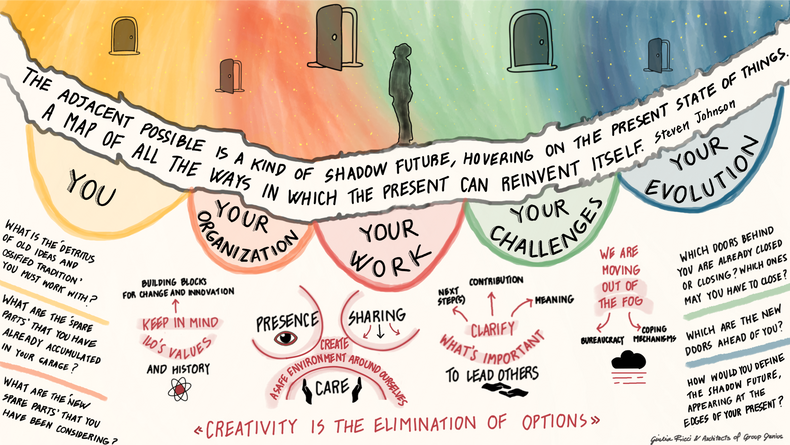 THE ADJACENT POSSIBLE IS A KIND OF SHADOW FUTURE, HOVERING ON THE PRESENT STATE OF THINGS.
A MAP OF ALL THE WAYS IN WHICH THE PRESENT CAN REINVENT ITSELF. Steven Johnson
YOU
YOUR
ORGANIZATION
YOUR
WORK
YOUR
CHALLENGES
YOUR
EVOLUTION
WHAT IS THE 'DETRITUS
OF OLD IDEAS AND
OSSIFIED TRADITION'
YOU MUST WORK WITH?
WHAT ARE THE 'SPARE
PARTS' THAT YOU HAVE
ALREADY ACCUMULATED
IN YOUR GARAGE?
WHAT ARE THE 'NEW
SPARE PARTS' THAT YOU
HAVE BEEN CONSIDERING?
BUILDING BLOCKS
FOR CHANGE AND INNOVATION
KEEP IN MIND
ILO'S VALUES
AND HISTORY
PRESENCE
SHARING
CREATE
A SAFE ENVIRONMENT AROUND OURSELVES
CARE
NEXT
STEP(S)
CONTRIBUTION
MEANING
CLARIFY
WHAT'S IMPORTANT
TO LEAD OTHERS
WE ARE
MOVING
OUT OF
THE FOG
BUREAUCRACY
COPING
MECHANISMS
WHICH DOORS BEHIND
YOU ARE ALREADY CLOSED
OR CLOSING? WHICH ONES
MAY YOU HAVE TO CLOSE?
WHICH ARE THE NEW
DOORS AHEAD OF YOU?
HOW WOULD YOU DEFINE
THE SHADOW FUTURE,
APPEARING AT THE
EDGES OF YOUR PRESENT?
«CREATIVITY IS THE ELIMINATION OF OPTIONS»
Ricci & Architects of Group Genius